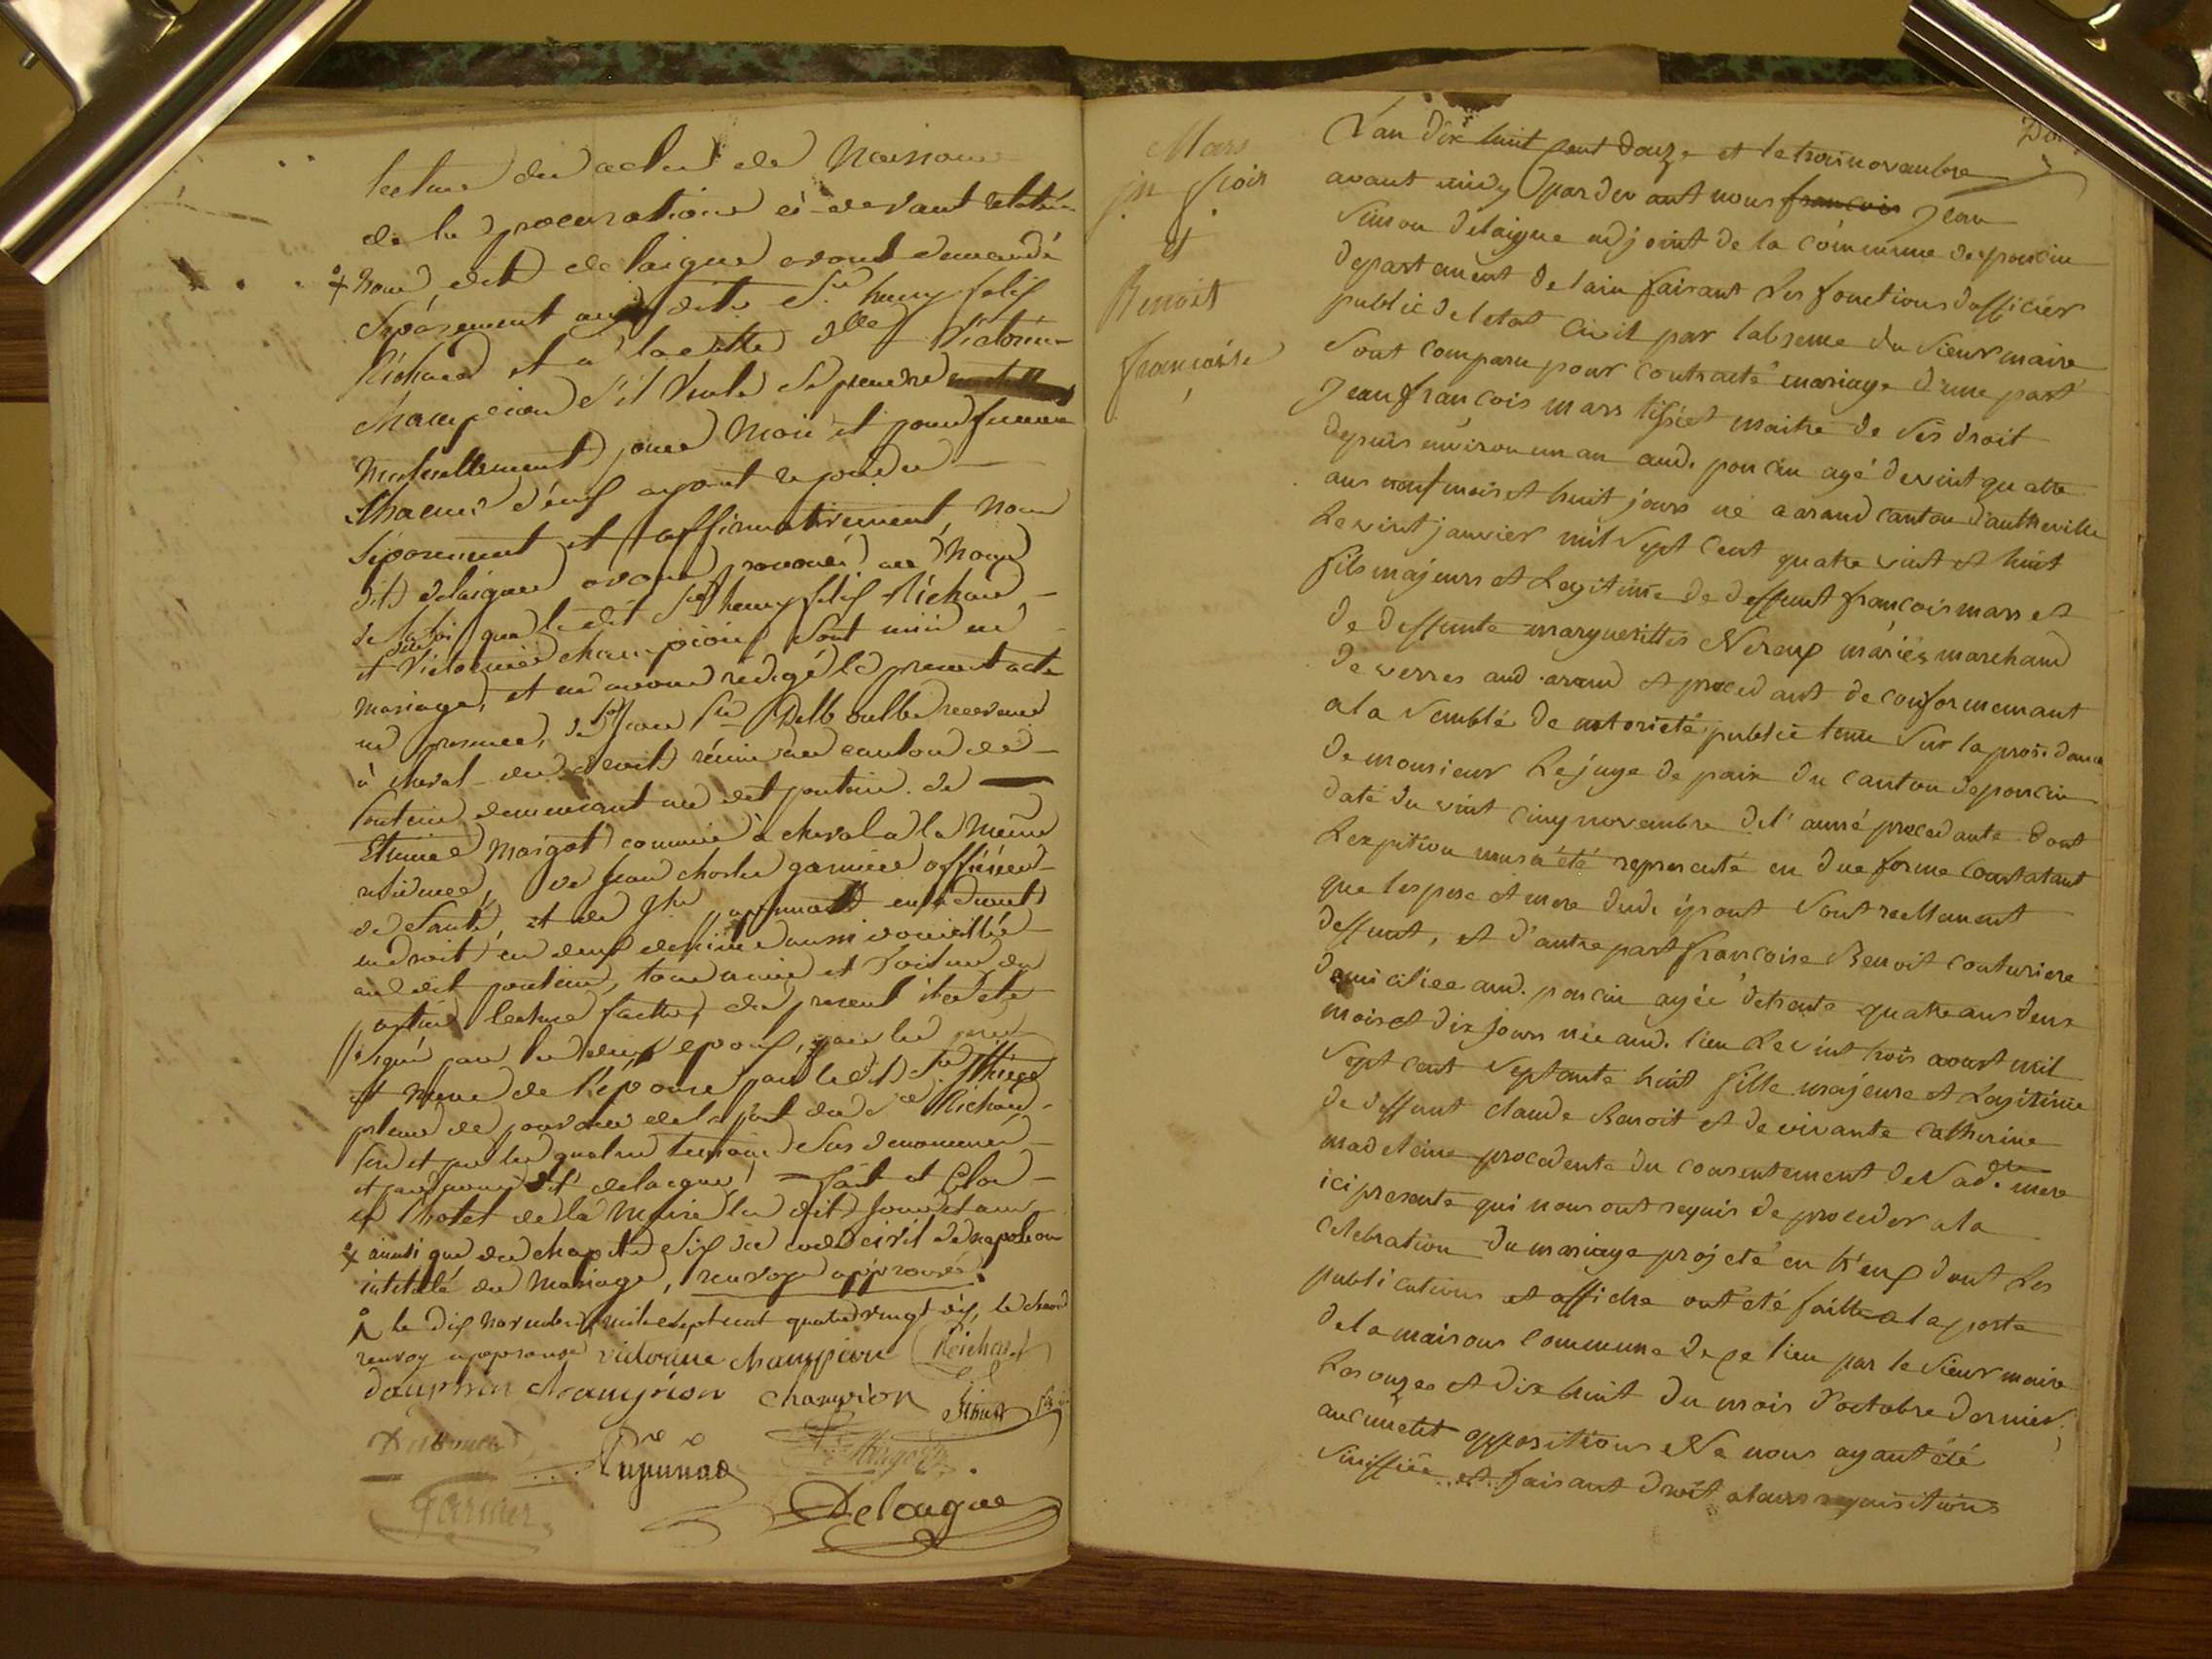 lecture du acte de Naissance
de la procuration ci-devant relatée
Nous, dit delaigue avons demandé
Séparément audit Sr henry felix
Richard et a laditte dlle Victorine
champion s'il veule se prendre
Mutuellement pour Mari et pour femme
Chacun d'eux ayant repondu
séparement et affirmativement, nous
dit delaigue avons prononcé au Nom
de la loi que ledit Sr henry felix Richard
et Dlle Victorine champion sont unis en
mariage, et en avons rédigé le present acte
en presence, de Jean Delboulbe receveur
à cheval des droits réunis du canton de
Poncin demeurant au dit poncin. de
Etienne Margot commis à cheval a la même
residence, de Jean charles garnier officier
de Santé, et de
endroit
audit poncin, tous amis et Voisins des
parties lecture faitte, du present il a été
signé par les deux epoux, par les pere
et mere de l'épouse par ledit Sr
de pouvoir de la part du Sr Richard
et par les quatre temoins sus denommés
et par nous dit delaigue, fait et Clos
en l'hotel de la Mairie les dits jour et an
ainsi que du chapitre six du code civil de napoleon
intitulé du Mariage, renvoye approuvé.
le dix novembre mil sept cent quatre vingt dix,
renvoy approuvé victorine champion Richard
dauphin champion champion
Margot
Pupunat
Garnier Delaigue
Mars
jn frois
et
Benoit
francoise
L'an dix huit cent douze et le trois novembre
avant midy par devant nous francois Jean
Simon delaigue adjoint de la commune de poncin
departement de lain faisant les fonctions d'officier
public de l etat Civil par labsence du Sieur maire
Sont comparu pour contracté mariage d'une part
Jean françois mars maitre de ses droit
depuis environ un an aud. poncin agé de vint quatre
ans neuf mois et huit jours né a arand canton d'autheville
Le vint janvier mil sept cent quatre vint et huit
fils majeurs et Legitime de deffunt françois mars et
de deffunte marguerittes Neroup mariés marchand
de verres aud. arand et procedant de conformemant
a la semblé de notorieté public tenu sur la presidance
de monsieur Le juge de paix du canton de poncin
daté du vint cinq novembre de l'année precedante Dont
L expition nous a été representé en due forme Constatant
que les pere et mere dud. epout sont reellemant
deffunt, et d'autre part francoise Benoit couturiere
domiciliée aud. poncin agée de trente quatre ans deux
mois et dix jours née aud. lieu Le vint trois aoust mil
sept cent septante huit fille majeure et Legitime
de deffunt claude Benoit et de vivante catherine
madeleine procedente du consentement de Sad. mere
ici presente qui nous ont requis de proceder a la
celebration du mariage projeté en tr'eux dont Les
publications et affiche ont eté faitte a la porte
de la maisons commune de ce lieu par le sieur maire
Les onze et dix huit du mois d'octobre dernier,
aucune opposition Ne nous ayant été
sinifiée et faisant droit a leurs requisitions